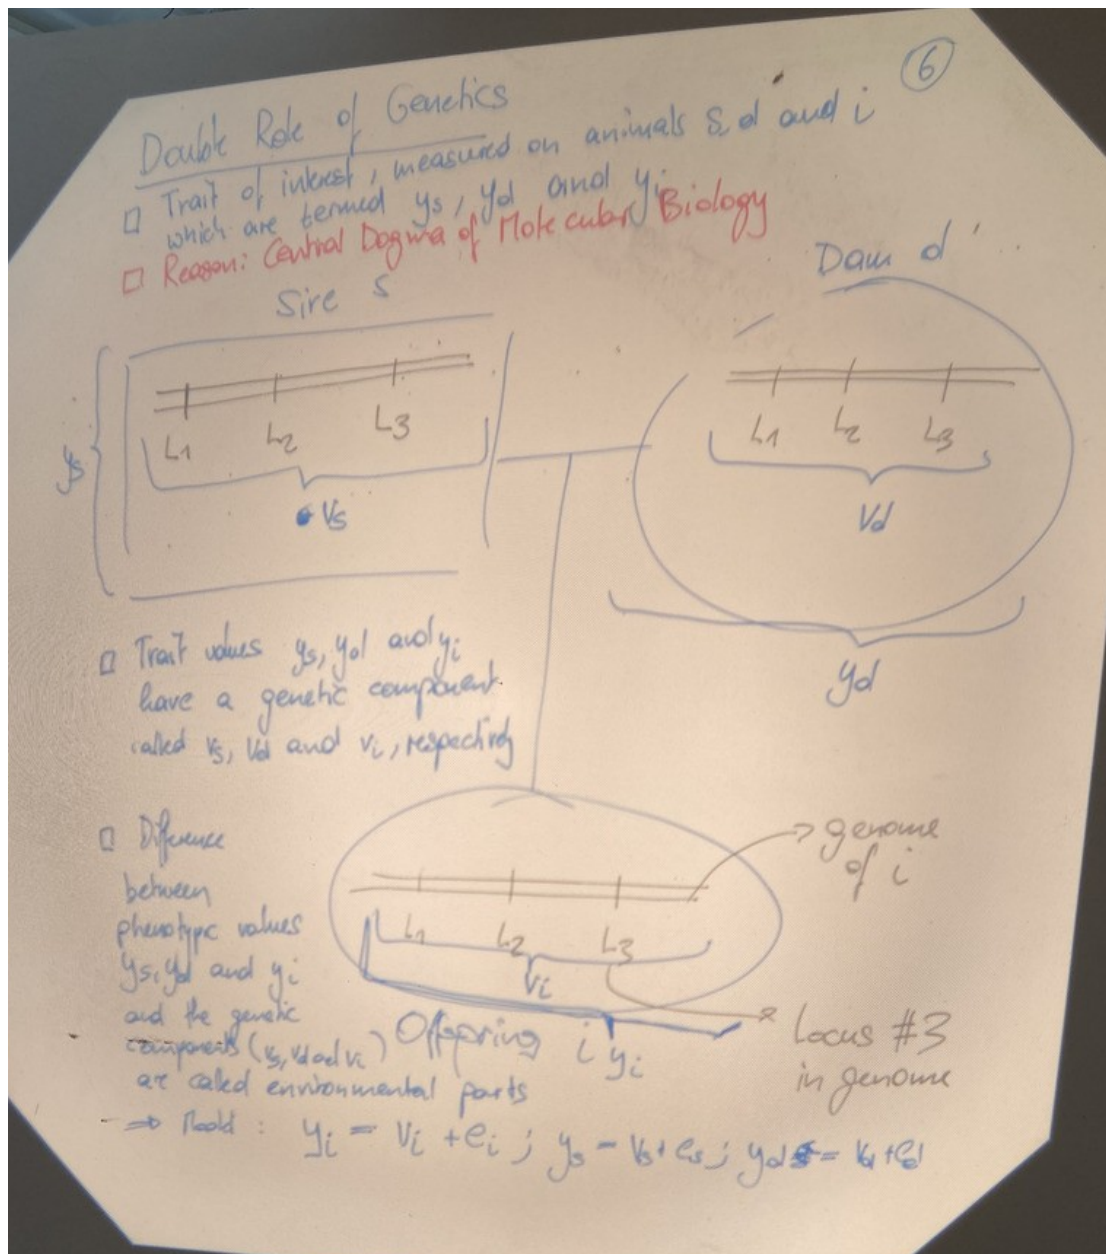 6
Double Role of Genetics
□ Trait of interest, measured on animals s, d and i
which are termed ys, yd and yi
□ Reason: Central Dogma of Molecular Biology
Sire s
Dam d
L1 L2 L3
ys
vs
L1 L2 L3
Vd
yd
□ Trait values ys, yd and yi
have a genetic component
called vs, vd and vi, respectively
□ Difference
between
phenotypic values
ys, yd and yi
and the genetic
components (vs, vd and vi)
are called environmental parts
genome
of i
L1 L2 L3
Vi
Offspring i yi
Locus #3
in genome
⇒ : yi = vi + ei ; ys = vs + es ; yd = vd + ed